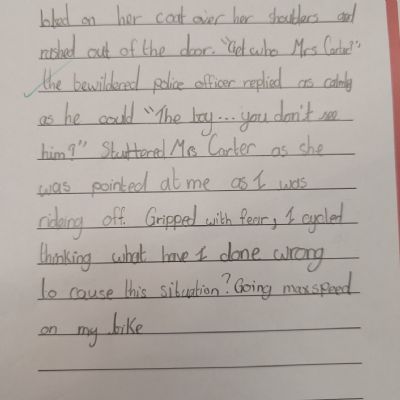 on her coat over her shoulders and
rushed out of the door. "Get who Mrs Carter?"
the bewildered police officer replied as calmly
as he could "The boy... you don't see
him?" Stuttered Mrs Carter as she
was pointed at me as I was
rideing off. Gripped with fear, I cycled
thinking what have I done wrong
to cause this situation? Going maxspeed
on my bike